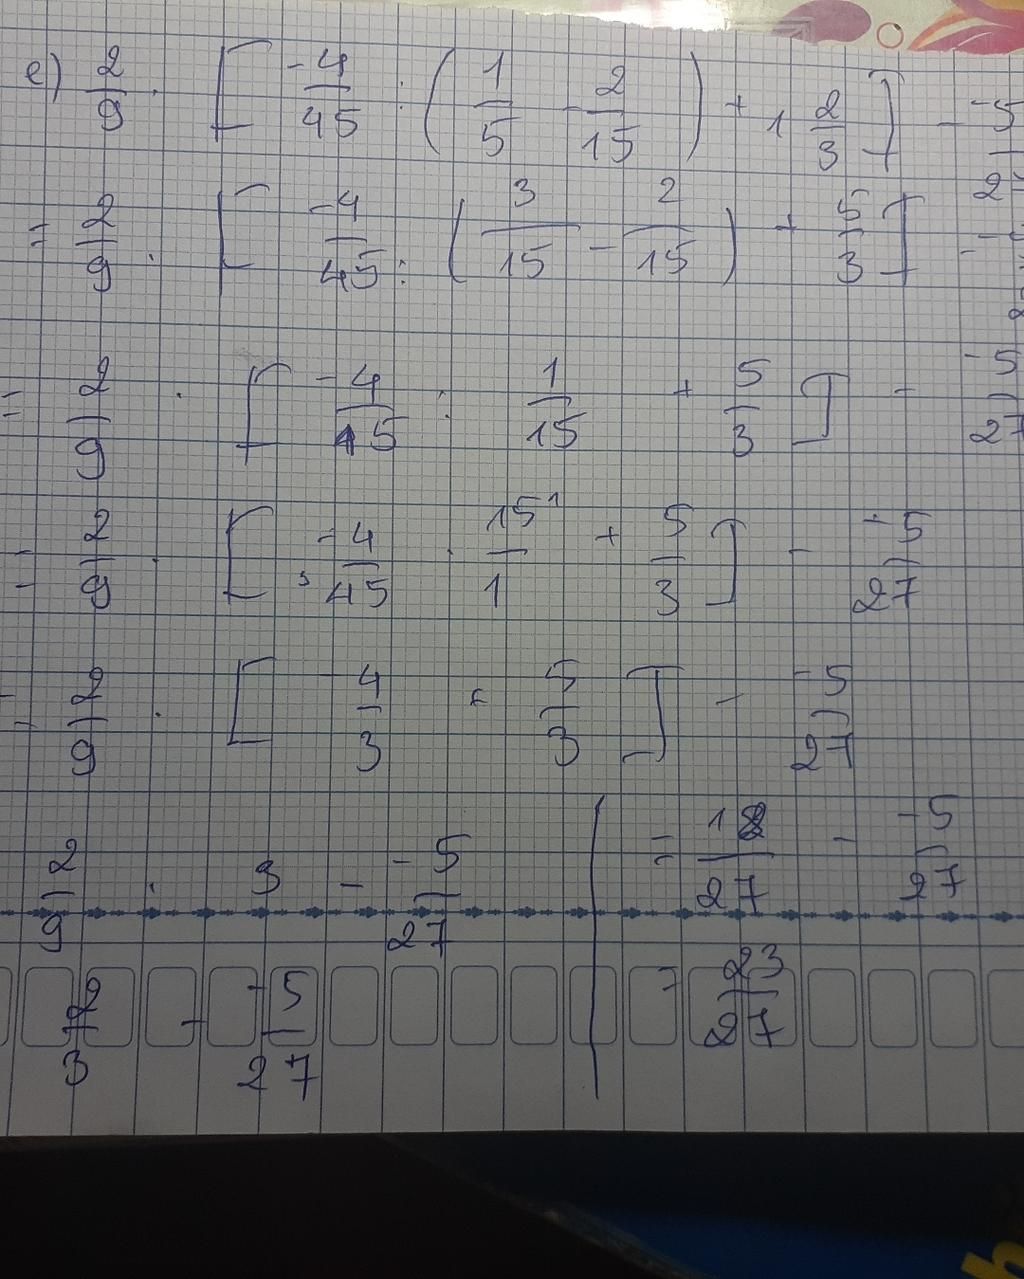 e) 2/9 · [ -4/45 : ( 1/5 - 2/15 ) + 1 2/3 ] - -5/2
= 2/9 · [ -4/45 : ( 3/15 - 2/15 ) + 5/3 ] -
= 2/9 · [ -4/45 : 1/15 + 5/3 ] - -5/27
= 2/9 · [ -4/45 3 · 15 1/1 + 5/3 ] - -5/27
= 2/9 · [ -4/3 + 5/3 ] - -5/27
2/9 · 3 - -5/27
2/3 - -5/27
= 18/27 - -5/27
= 23/27